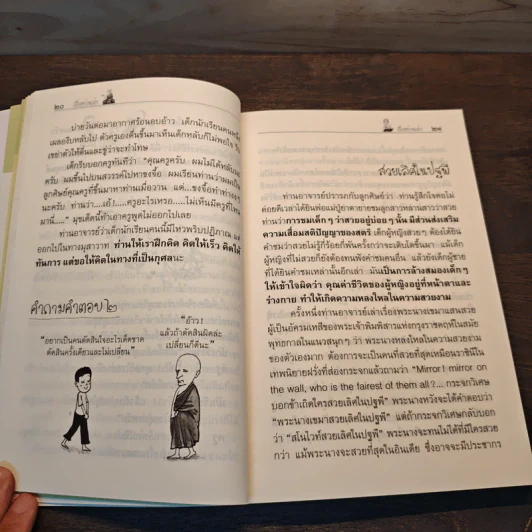 ๒๐ เรื่องท่านเล่า
บ่ายวันต่อมาอากาศร้อนอบอ้าว เด็กนักเรียนคนหนึ่ง
เผลองีบหลับไป ตัวครูเองตื่นขึ้นมาเห็นเด็กหลับก็ไม่พอใจ
เขย่าตัวให้ตื่นและขู่ว่าจะทำโทษ
เด็กรีบบอกครูทันทีว่า "คุณครูครับ ผมไม่ได้หลับนะ
ครับ ผมขึ้นไปบนสวรรค์ไปหาขงจื้อ ผมเรียนท่านว่าผมเป็น
ลูกศิษย์คุณครูที่ขึ้นมาหาท่านเมื่อวาน แต่...ขงจื้อทำท่างงๆ
นะครับ ท่านว่า...เอ๋!...ครูอะไรเหรอ.....ไม่เห็นมีครูที่ไหน
มานี่...." มุขเด็ดนี้ทำเอาครูพูดไม่ออกไปเลย
ท่านอาจารย์ว่าเด็กนักเรียนคนนี้มีไหวพริบปฏิภาณ
ออกไปในทางมุสาวาท ท่านให้เราฝึกคิด คิดให้เร็ว คิดให้
ทันการ แต่ขอให้คิดในทางที่เป็นกุศลนะ
คำถามคำตอบ ๒
"อยากเป็นคนตัดสินใจอะไรเด็ดขาด
ตัดสินครั้งเดียวและไม่เปลี่ยน"
"อ้าว!
แล้วถ้าตัดสินผิดล่ะ
เปลี่ยนก็ดีนะ"
เรื่องท่านเล่า ๒๑
สวยเลิศในปฐพี
ท่านอาจารย์ปรารภกับลูกศิษย์ว่า ท่านรู้สึกใจตกใจไม่
ค่อยดีเวลาได้ยินพ่อแม่ปู่ย่าตายายชมลูกสาวหลานสาวว่าสวย
ท่านว่าการชมเด็กๆ ว่าสวยอยู่บ่อยๆ นั้น มีส่วนส่งเสริม
ความเสื่อมสติปัญญาของสตรี เด็กผู้หญิงสวยๆ ต้องได้ยิน
คำชมว่าสวยไม่รู้กี่ร้อยกี่พันครั้งกว่าจะเติบโตขึ้นมา แม้เด็ก
ผู้หญิงที่ไม่สวยก็ยังต้องทนฟังคำชมคนอื่น แล้วยังเด็กผู้ชาย
ที่ได้ยินคำชมเหล่านั้นอีกเล่า มันเป็นการล้างสมองเด็กๆ
ให้เข้าใจผิดว่า คุณค่าชีวิตของผู้หญิงอยู่ที่หน้าตาและ
ร่างกาย ทำให้เกิดความหลงใหลในความสวยงาม
ครั้งหนึ่งท่านอาจารย์เล่าเรื่องพระนางเขมาแสนสวย
ผู้เป็นอัครมเหสีของพระเจ้าพิมพิสารแห่งกรุงราชคฤห์ในสมัย
พุทธกาลในแนวสนุกๆ ว่า พระนางหลงใหลในความสวยงาม
ของตัวเองมาก ต้องการจะเป็นคนที่สวยที่สุดเหมือนราชินีใน
เทพนิยายฝรั่งที่ส่องกระจกแล้วถามว่า "Mirror ! mirror on
the wall, who is the fairest of them all?... กระจกวิเศษ
บอกข้าเถิดใครสวยเลิศในปฐพี" พระนางหวังจะได้คำตอบว่า
"พระนางเขมาสวยเลิศในปฐพี" แต่ถ้ากระจกวิเศษกลับบอก
ว่า "สโนไวท์สวยเลิศในปฐพี" พระนางจะทนไม่ได้ที่มีใครสวย
กว่า แม้พระนางจะสวยที่สุดในอินเดีย ซึ่งอาจจะมีประชากร